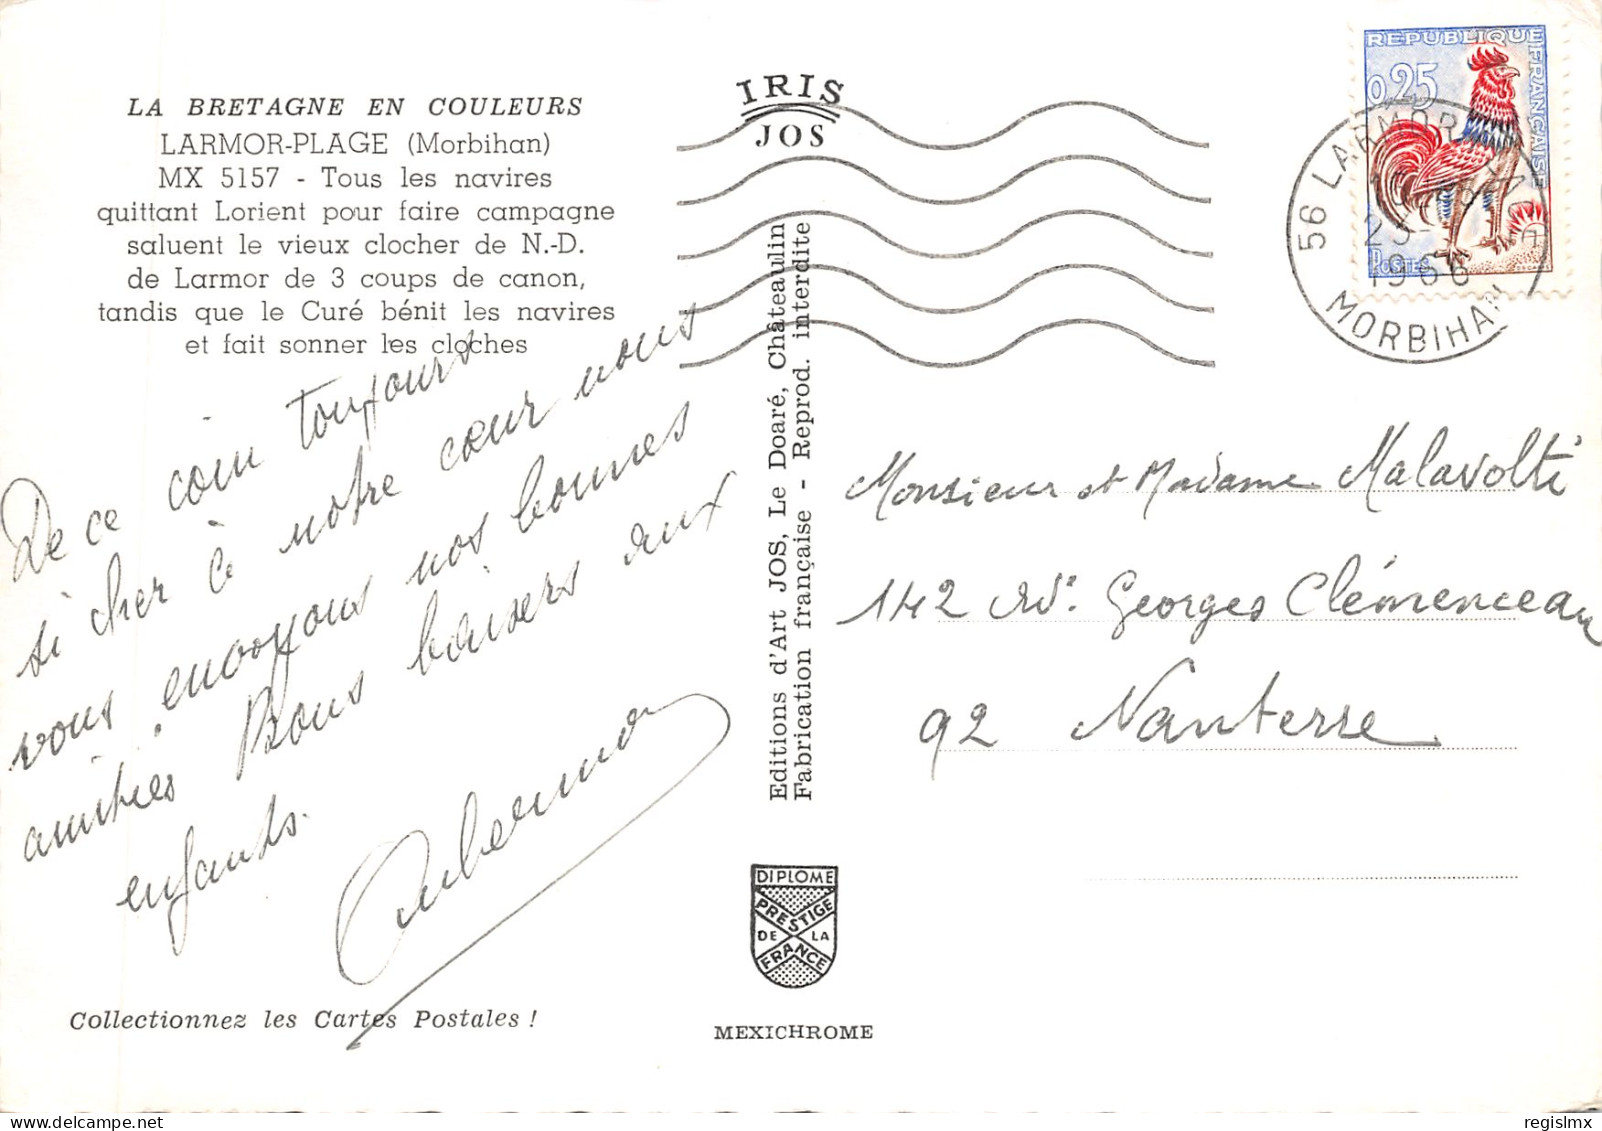 LA BRETAGNE EN COULEURS
LARMOR-PLAGE (Morbihan)
MX 5157 - Tous les navires
quittant Lorient pour faire campagne
saluent le vieux clocher de N.-D.
de Larmor de 3 coups de canon,
tandis que le Curé bénit les navires
et fait sonner les cloches
De ce coin toujours
si cher à notre cœur nous
vous envoyons nos bonnes
amitiés Bons baisers aux
enfants.
Collectionnez les Cartes Postales !
IRIS
JOS
Editions d'Art JOS, Le Doaré, Châteaulin
Fabrication française - Reprod. interdite
DIPLOME
PRESTIGE
DE LA
FRANCE
MEXICHROME
REPUBLIQUE FRANÇAISE
0,25
POSTES
56 LARMOR PLAGE
1966
MORBIHAN
Monsieur et Madame Malavolti
142 Av. Georges Clémenceau
92 Nanterre
regislmx